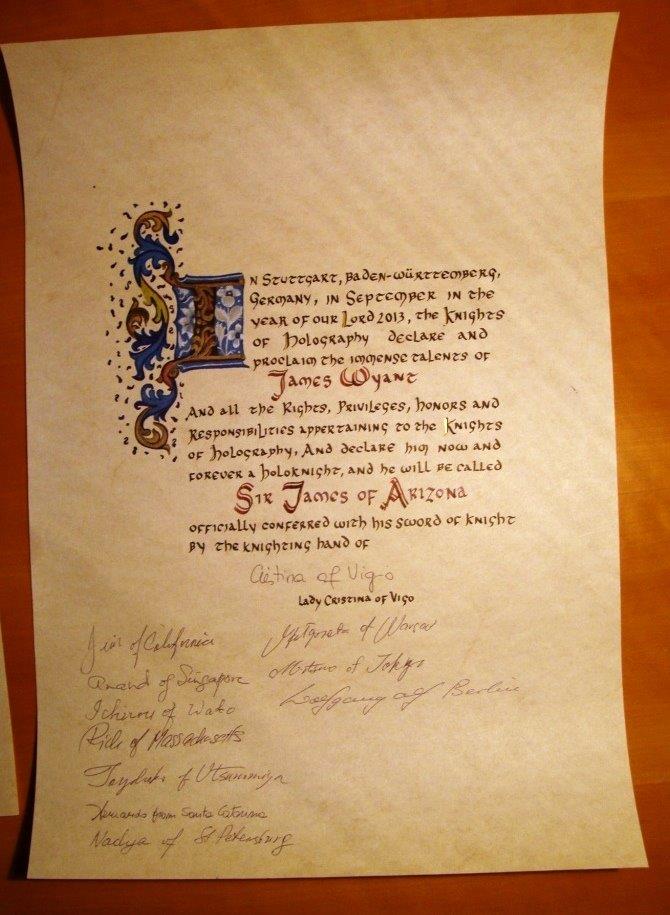 IN STUTTGART, BADEN-WÜRTTEMBERG,
GERMANY, IN SEPTEMBER IN THE
YEAR OF OUR LORD 2013, THE KNIGHTS
OF HOLOGRAPHY DECLARE AND
PROCLAIM THE IMMENSE TALENTS OF
JAMES WYANT
AND ALL THE RIGHTS, PRIVILEGES, HONORS AND
RESPONSIBILITIES APPERTAINING TO THE KNIGHTS
OF HOLOGRAPHY, AND DECLARE HIM NOW AND
FOREVER A HOLOKNIGHT, AND HE WILL BE CALLED
SIR JAMES OF ARIZONA
OFFICIALLY CONFERRED WITH HIS SWORD OF KNIGHT
BY THE KNIGHTING HAND OF
Cristina of Vigo
LADY CRISTINA OF VIGO
Jim of California
Anand of Singapore
Ichirou of Wako
Rick of Massachusetts
of Utsunomiya
from Santa Catarina
Nadya of St Petersburg
of Warsaw
of Tokyo
Wolfgang of Berlin